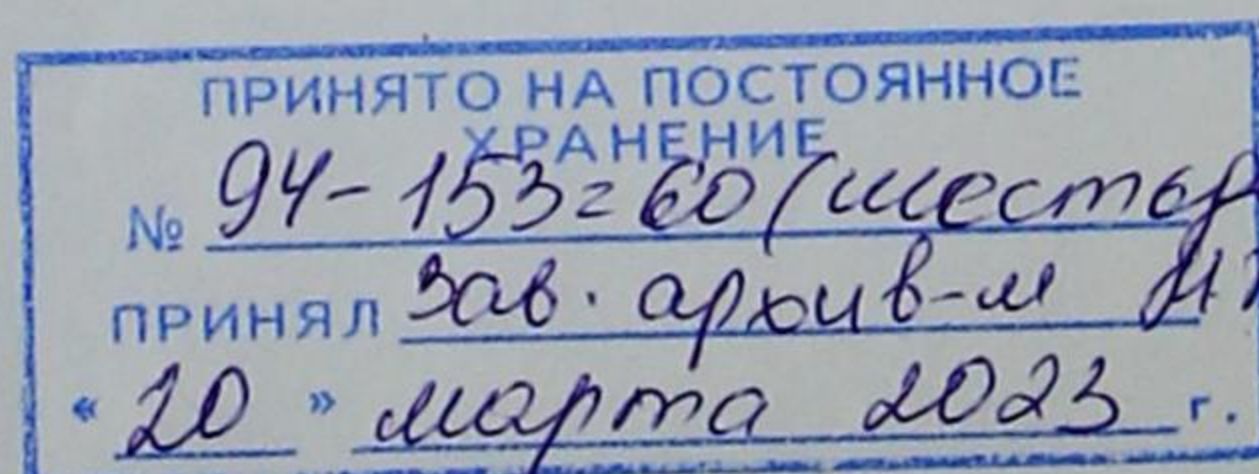 ПРИНЯТО НА ПОСТОЯННОЕ
ХРАНЕНИЕ
№ 94-153=60 (шестьд
ПРИНЯЛ Зав. архив-м
« 20 » марта 2023 г.